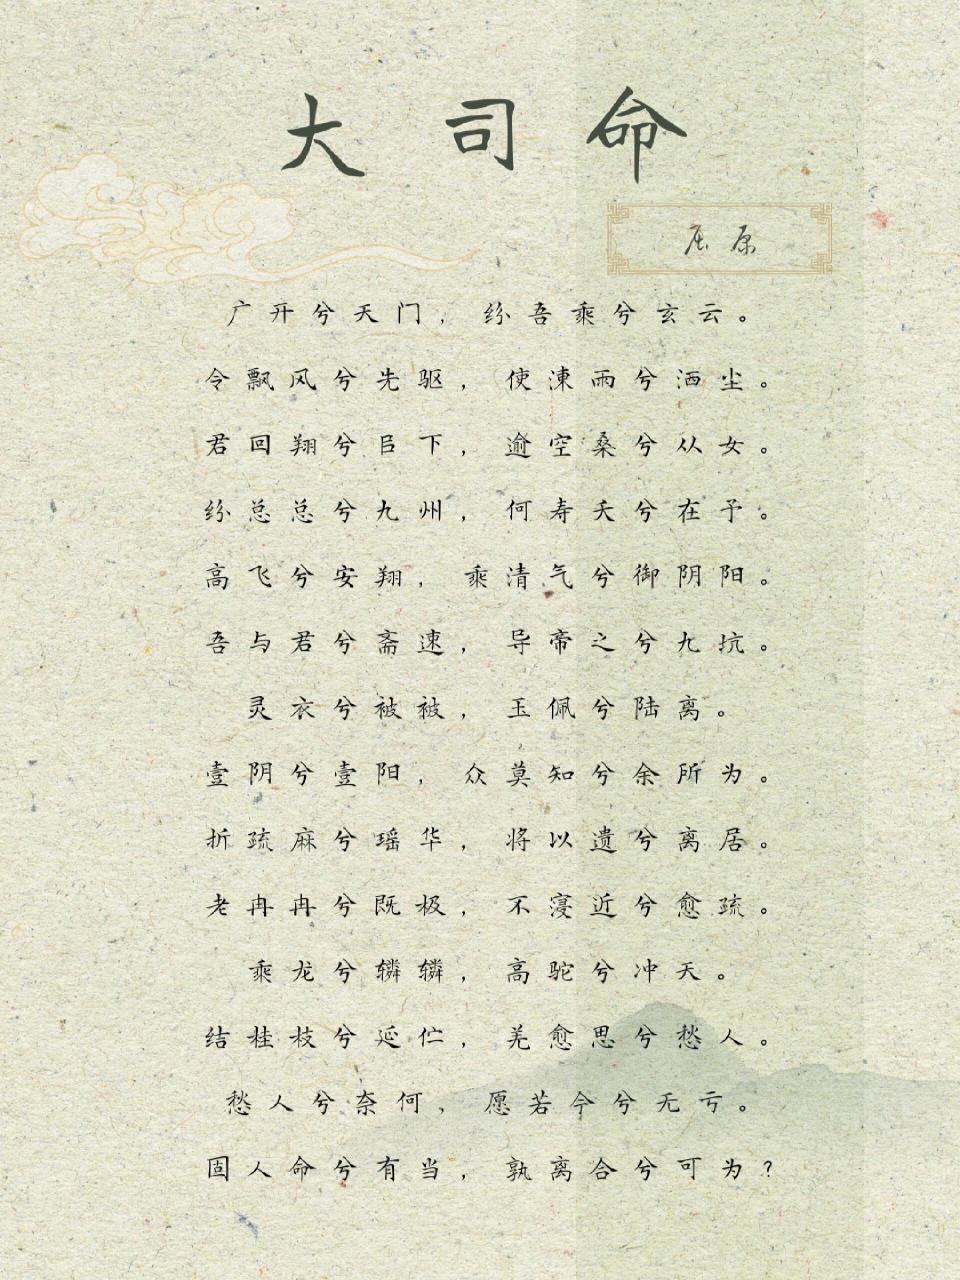 大司命
屈原
广开兮天门，纷吾乘兮玄云。
令飘风兮先驱，使涷雨兮洒尘。
君回翔兮㠯下，逾空桑兮从女。
纷总总兮九州，何寿夭兮在予。
高飞兮安翔，乘清气兮御阴阳。
吾与君兮斋速，导帝之兮九坑。
灵衣兮被被，玉佩兮陆离。
壹阴兮壹阳，众莫知兮余所为。
折疏麻兮瑶华，将以遗兮离居。
老冉冉兮既极，不寖近兮愈疏。
乘龙兮辚辚，高驼兮冲天。
结桂枝兮延伫，羌愈思兮愁人。
愁人兮奈何，愿若今兮无亏。
固人命兮有当，孰离合兮可为？